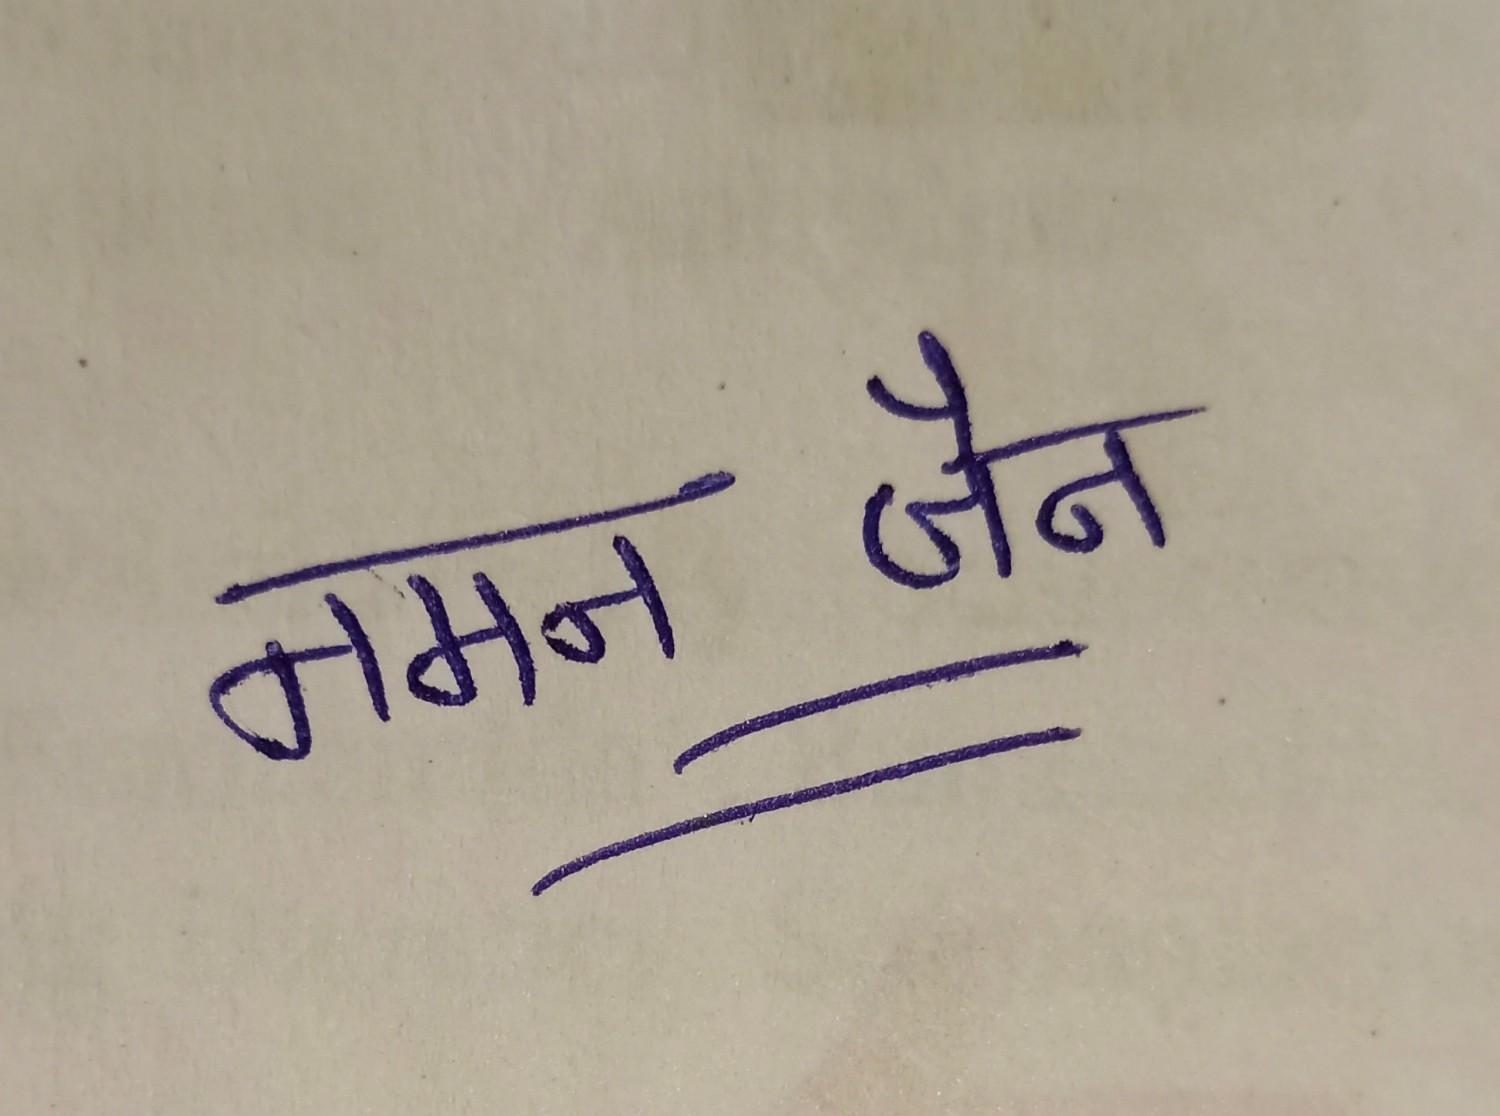 नमन जैन